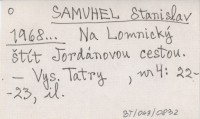 o
SAMUHEL Stanislav
1968... Na Lomnický
štít Jordánovou cestou.
- Vys. Tatry , nr 4: 22-
-23, il.
BT/049/0832